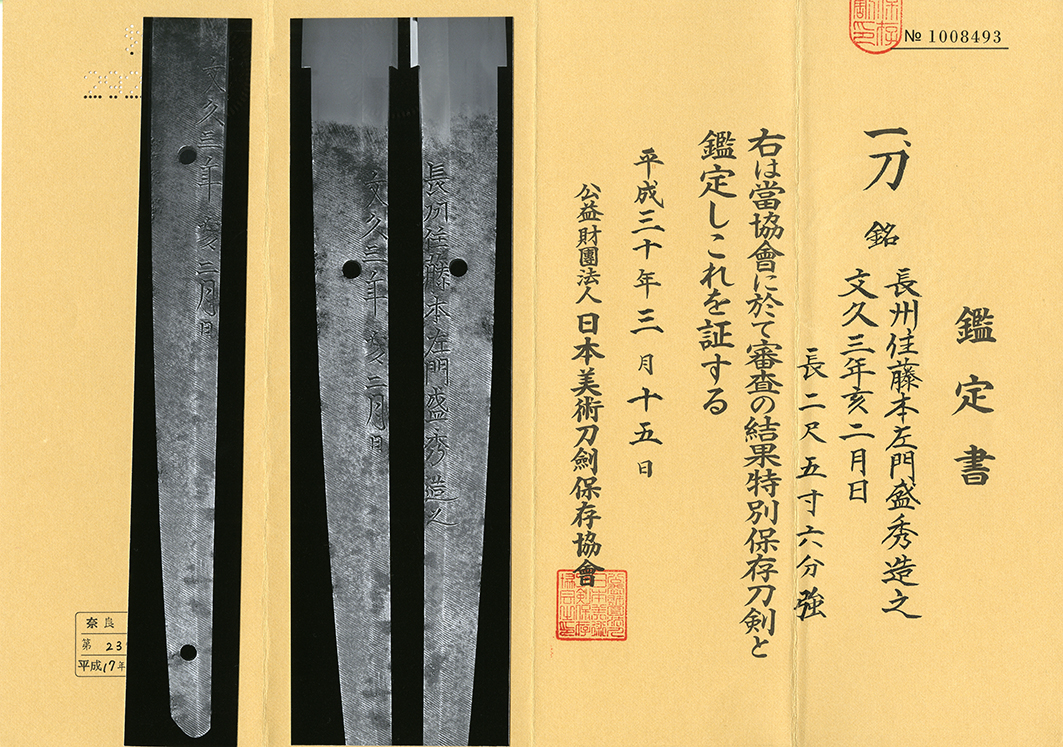 № 1008493
鑑定書
一、刀 銘 長州住藤本左門盛秀造之
文久三年亥二月日
長二尺五寸六分強
右は當協會に於て審査の結果特別保存刀剣と
鑑定しこれを証する
平成三十年三月十五日
公益財團法人日本美術刀劍保存協會
長州住藤本左門盛秀造之
文久三年亥二月日
文久三年亥二月日
奈良
第 23
平成17年